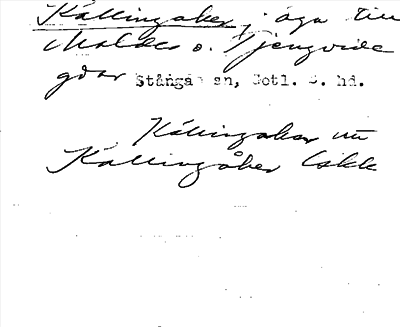 Källingaker, äga till
Maldes o. Tjengvide
gdar Stånga sn, Gotl. S. hd.
Källingaker nu
Källingåker